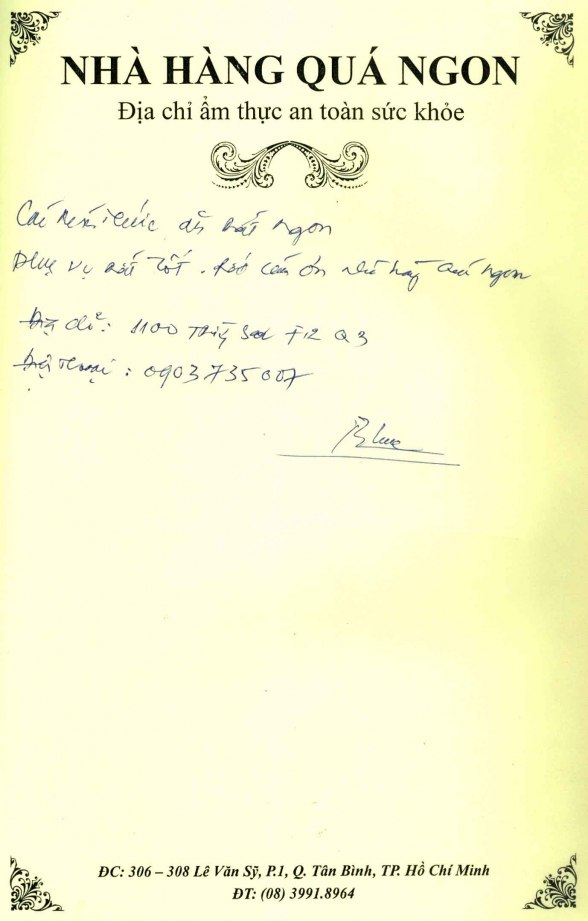 NHÀ HÀNG QUÁ NGON
Địa chỉ ẩm thực an toàn sức khỏe
rất ngon
Phục vụ rất tốt. cám ơn nhà hàng Quá Ngon
Địa chỉ: 1100 F12 Q3
Điện thoại: 0903735007
ĐC: 306 – 308 Lê Văn Sỹ, P.1, Q. Tân Bình, TP. Hồ Chí Minh
ĐT: (08) 3991.8964